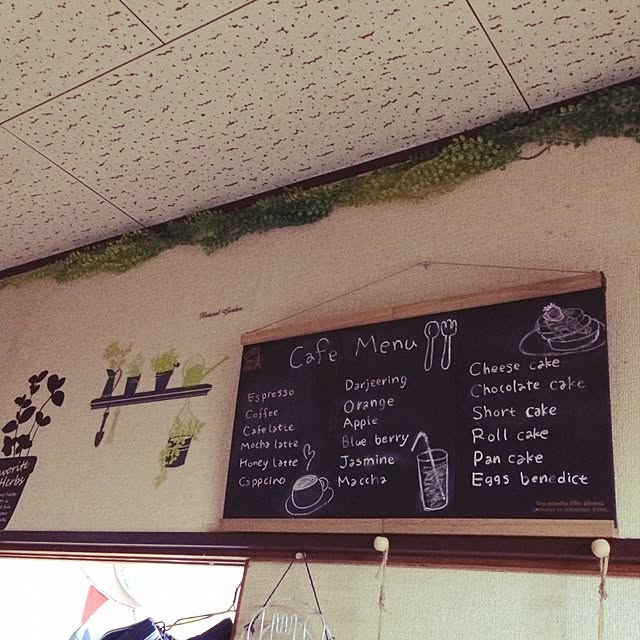 Natural Garden
Cafe Menu
Espresso
Coffee
Cafe latte
Mocha latte
Honey latte
Cappcino
Darjeering
Orange
Apple
Blue berry
Jasmine
Maccha
Cheese cake
Chocolate cake
Short cake
Roll cake
Pan cake
Eggs benedict
Favorite
Herbs